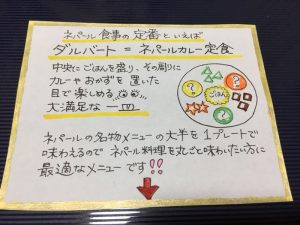 ネパール食事の定番といえば
ダルバート=ネパールカレー定食
中央にごはんを盛り、その周りに
カレーやおかずを置いた
目で楽しめる
大満足な一皿
?
?
ごはん
?
ネパールの名物メニューの大半を1プレートで
味わえるのでネパール料理を丸ごと味わいたい方に
最適なメニューです!!